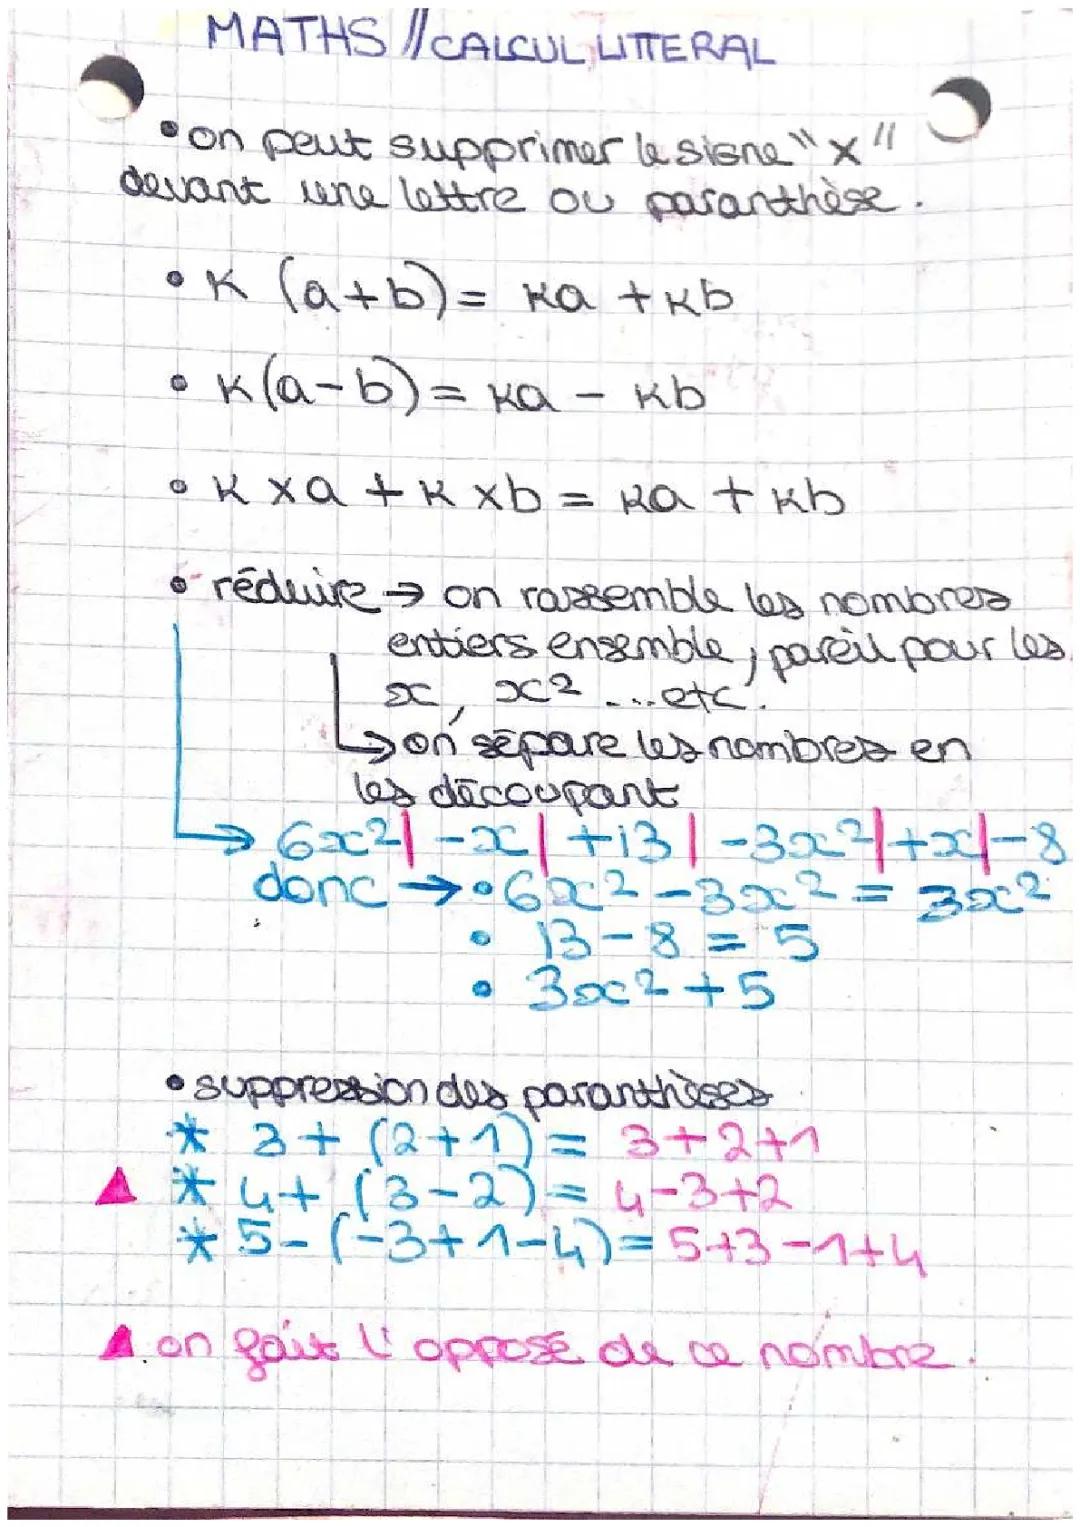 MATHS // CALCUL LITTERAL
• on peut supprimer le signe "x"
devant une lettre ou paranthèse.
• K (a+b) = Ka + Kb
• K(a-b) = Ka - Kb
• K x a + K x b = Ka + Kb
• réduire → on rassemble les nombres
entiers ensemble, pareil pour les
x, x² ...etc.
↳ on sépare les nombres en
les découpant
→ 6x²| -x| +13| -3x²|+x|-8
donc → • 6x² - 3x² = 3x²
• 13-8 = 5
• 3x² + 5
• suppression des paranthèses
* 3+ (2+1) = 3+2+1
▲ * 4+ (3-2) = 4-3+2
* 5-(-3+1-4) = 5+3-1+4
▲ on fait l'opposé de ce nombre.